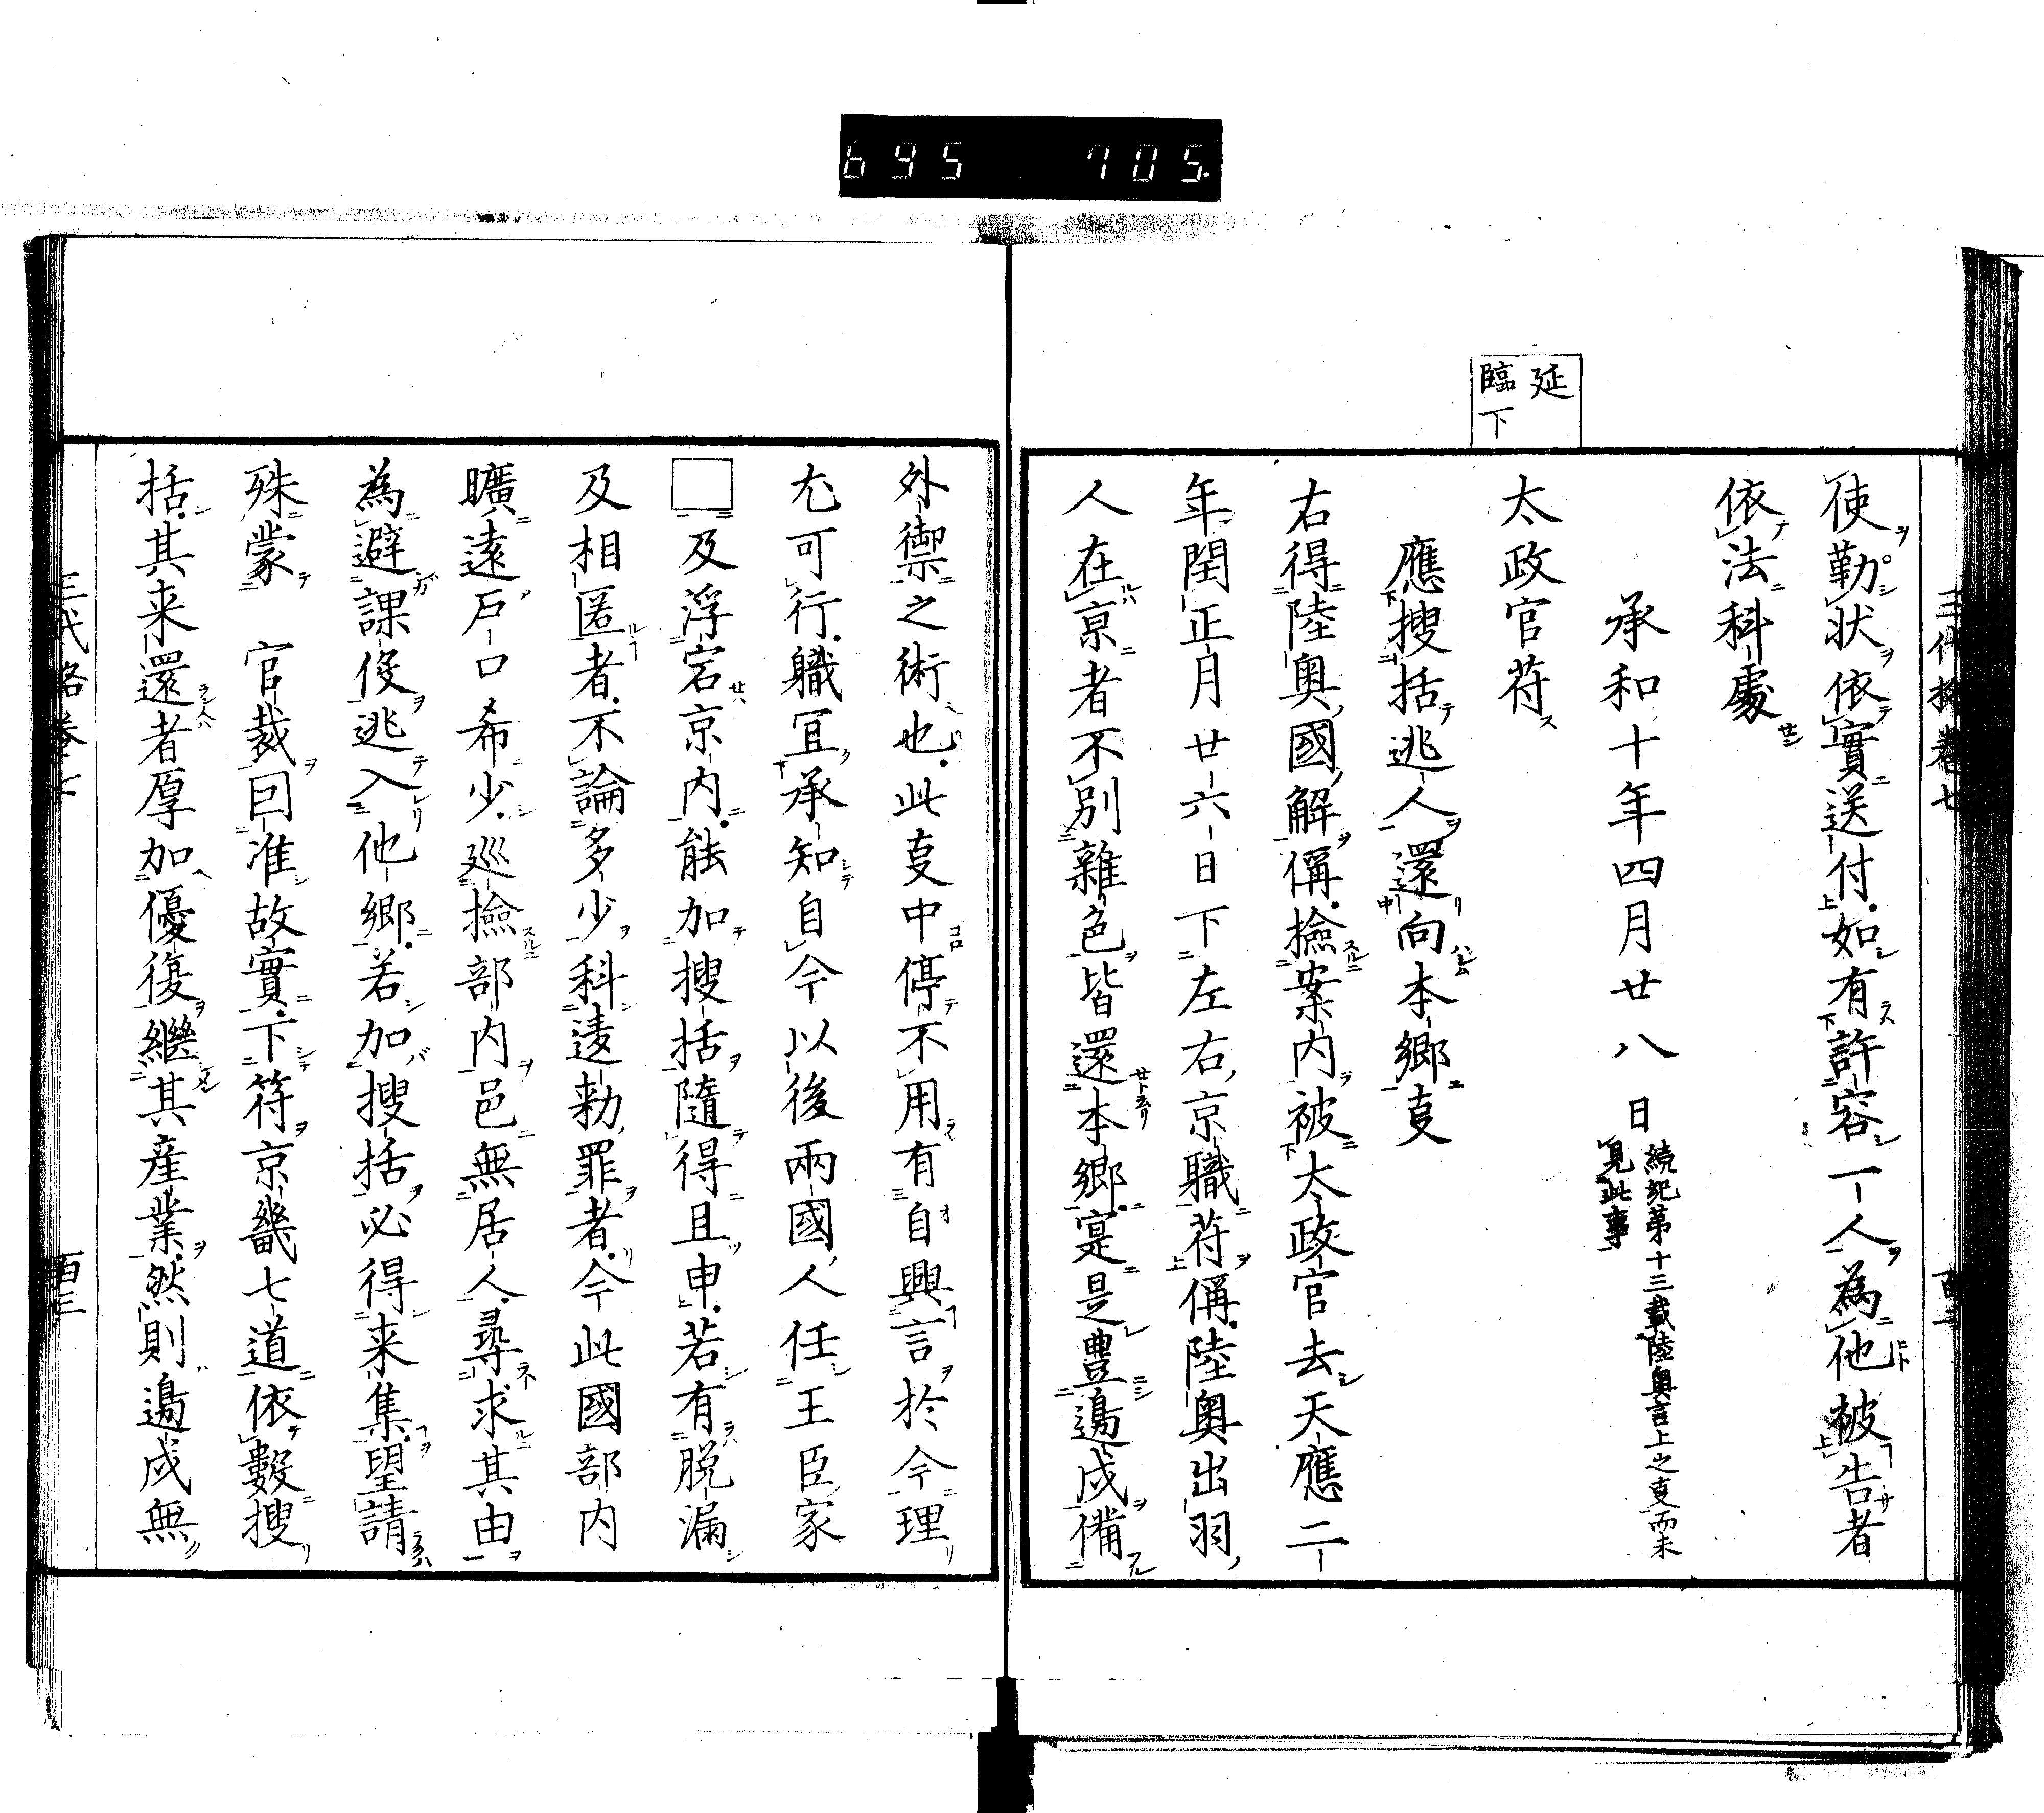 695 705.
延
臨
下
使勒状依實送付如有許容一人為他被告者
依法科處
承和十年四月廿八日
続紀第十三載陸奥言上之叓而未
見此事
太政官苻
應搜括逃人還向本郷叓
右得陸奥國解偁撿案内被太政官去天應二
年閏正月廿六日下左右京職苻偁陸奥出羽
人在京者不別雜色皆還本郷寔是豊邊戍備
外禦之術也此叓中停不用有自興言於今理
尤可行職冝承知自今以後兩國人任王臣家
□及浮宕京内能加搜括隨得且申若有脱漏
及相匿者不論多少科違勅罪者今此國部内
曠遠戸口希少巡撿部内邑無居人尋求其由
為避課役逃入他郷若加搜括必得来集望請
殊蒙 官裁因准故實下符京畿七道依數搜
括其来還者厚加優復繼其産業然則邊戍無